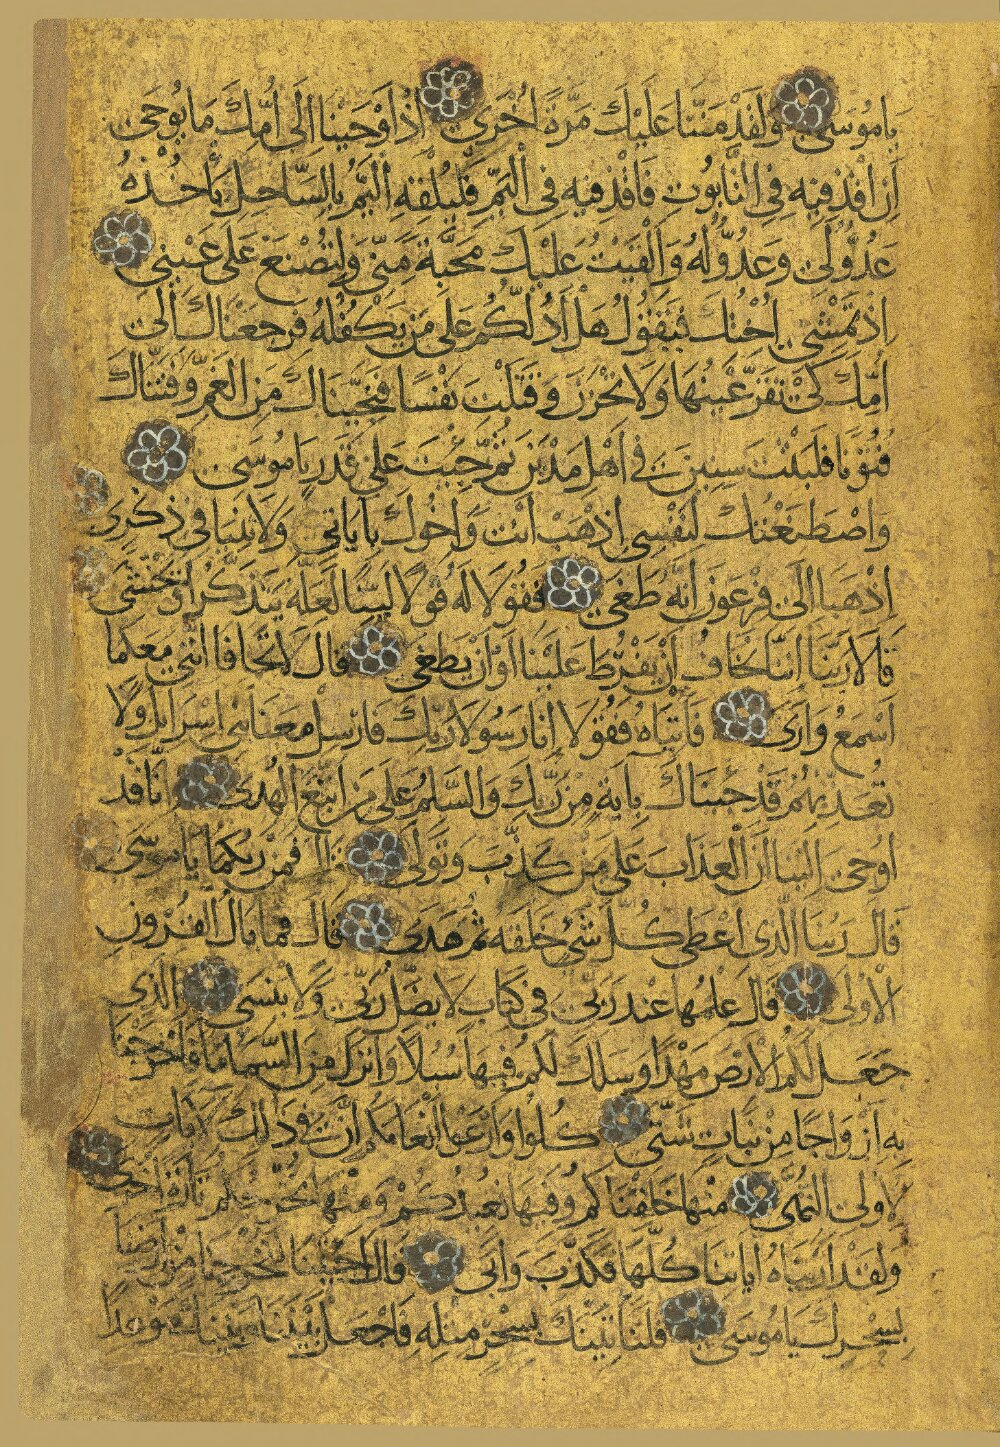 يَا مُوسَى وَلَقَدْ مَنَنَّا عَلَيْكَ مَرَّةً أُخْرَى إِذْ أَوْحَيْنَا إِلَى أُمِّكَ مَا يُوحَى
أَنِ اقْذِفِيهِ فِي التَّابُوتِ فَاقْذِفِيهِ فِي الْيَمِّ فَلْيُلْقِهِ الْيَمُّ بِالسَّاحِلِ يَأْخُذْهُ
عَدُوٌّ لِي وَعَدُوٌّ لَهُ وَأَلْقَيْتُ عَلَيْكَ مَحَبَّةً مِنِّي وَلِتُصْنَعَ عَلَى عَيْنِي
إِذْ تَمْشِي أُخْتُكَ فَتَقُولُ هَلْ أَدُلُّكُمْ عَلَى مَنْ يَكْفُلُهُ فَرَجَعْنَاكَ إِلَى
أُمِّكَ كَيْ تَقَرَّ عَيْنُهَا وَلَا تَحْزَنَ وَقَتَلْتَ نَفْسًا فَنَجَّيْنَاكَ مِنَ الْغَمِّ وَفَتَنَّاكَ
فُتُونًا فَلَبِثْتَ سِنِينَ فِي أَهْلِ مَدْيَنَ ثُمَّ جِئْتَ عَلَى قَدَرٍ يَا مُوسَى
وَاصْطَنَعْتُكَ لِنَفْسِي اذْهَبْ أَنْتَ وَأَخُوكَ بِآيَاتِي وَلَا تَنِيَا فِي ذِكْرِي
اذْهَبَا إِلَى فِرْعَوْنَ إِنَّهُ طَغَى فَقُولَا لَهُ قَوْلًا لَيِّنًا لَعَلَّهُ يَتَذَكَّرُ أَوْ يَخْشَى
قَالَا رَبَّنَا إِنَّنَا نَخَافُ أَنْ يَفْرُطَ عَلَيْنَا أَوْ أَنْ يَطْغَى قَالَ لَا تَخَافَا إِنَّنِي مَعَكُمَا
أَسْمَعُ وَأَرَى فَأْتِيَاهُ فَقُولَا إِنَّا رَسُولَا رَبِّكَ فَأَرْسِلْ مَعَنَا بَنِي إِسْرَائِلَ وَلَا
تُعَذِّبْهُمْ قَدْ جِئْنَاكَ بِآيَةٍ مِنْ رَبِّكَ وَالسَّلَمُ عَلَى مَنِ اتَّبَعَ الْهُدَى إِنَّا قَدْ
أُوحِيَ إِلَيْنَا أَنَّ الْعَذَابَ عَلَى مَنْ كَذَّبَ وَتَوَلَّى قَالَ فَمَنْ رَبُّكُمَا يَا مُوسَى
قَالَ رَبُّنَا الَّذِي أَعْطَى كُلَّ شَيْءٍ خَلْقَهُ ثُمَّ هَدَى قَالَ فَمَا بَالُ الْقُرُونِ
الْأُولَى قَالَ عِلْمُهَا عِنْدَ رَبِّي فِي كِتَابٍ لَا يَضِلُّ رَبِّي وَلَا يَنْسَى الَّذِي
جَعَلَ لَكُمُ الْأَرْضَ مَهْدًا وَسَلَكَ لَكُمْ فِيهَا سُبُلًا وَأَنْزَلَ مِنَ السَّمَاءِ مَاءً فَأَخْرَجْنَا
بِهِ أَزْوَاجًا مِنْ نَبَاتٍ شَتَّى كُلُوا وَارْعَوْا أَنْعَامَكُمْ إِنَّ فِي ذَلِكَ لَآيَاتٍ
لِأُولِي النُّهَى مِنْهَا خَلَقْنَاكُمْ وَفِيهَا نُعِيدُكُمْ وَمِنْهَا نُخْرِجُكُمْ تَارَةً أُخْرَى
وَلَقَدْ أَرَيْنَاهُ آيَاتِنَا كُلَّهَا فَكَذَّبَ وَأَبَى قَالَ أَجِئْتَنَا لِتُخْرِجَنَا مِنْ أَرْضِنَا
بِسِحْرِكَ يَا مُوسَى فَلَنَأْتِيَنَّكَ بِسِحْرٍ مِثْلِهِ فَاجْعَلْ بَيْنَنَا وَبَيْنَكَ مَوْعِدًا